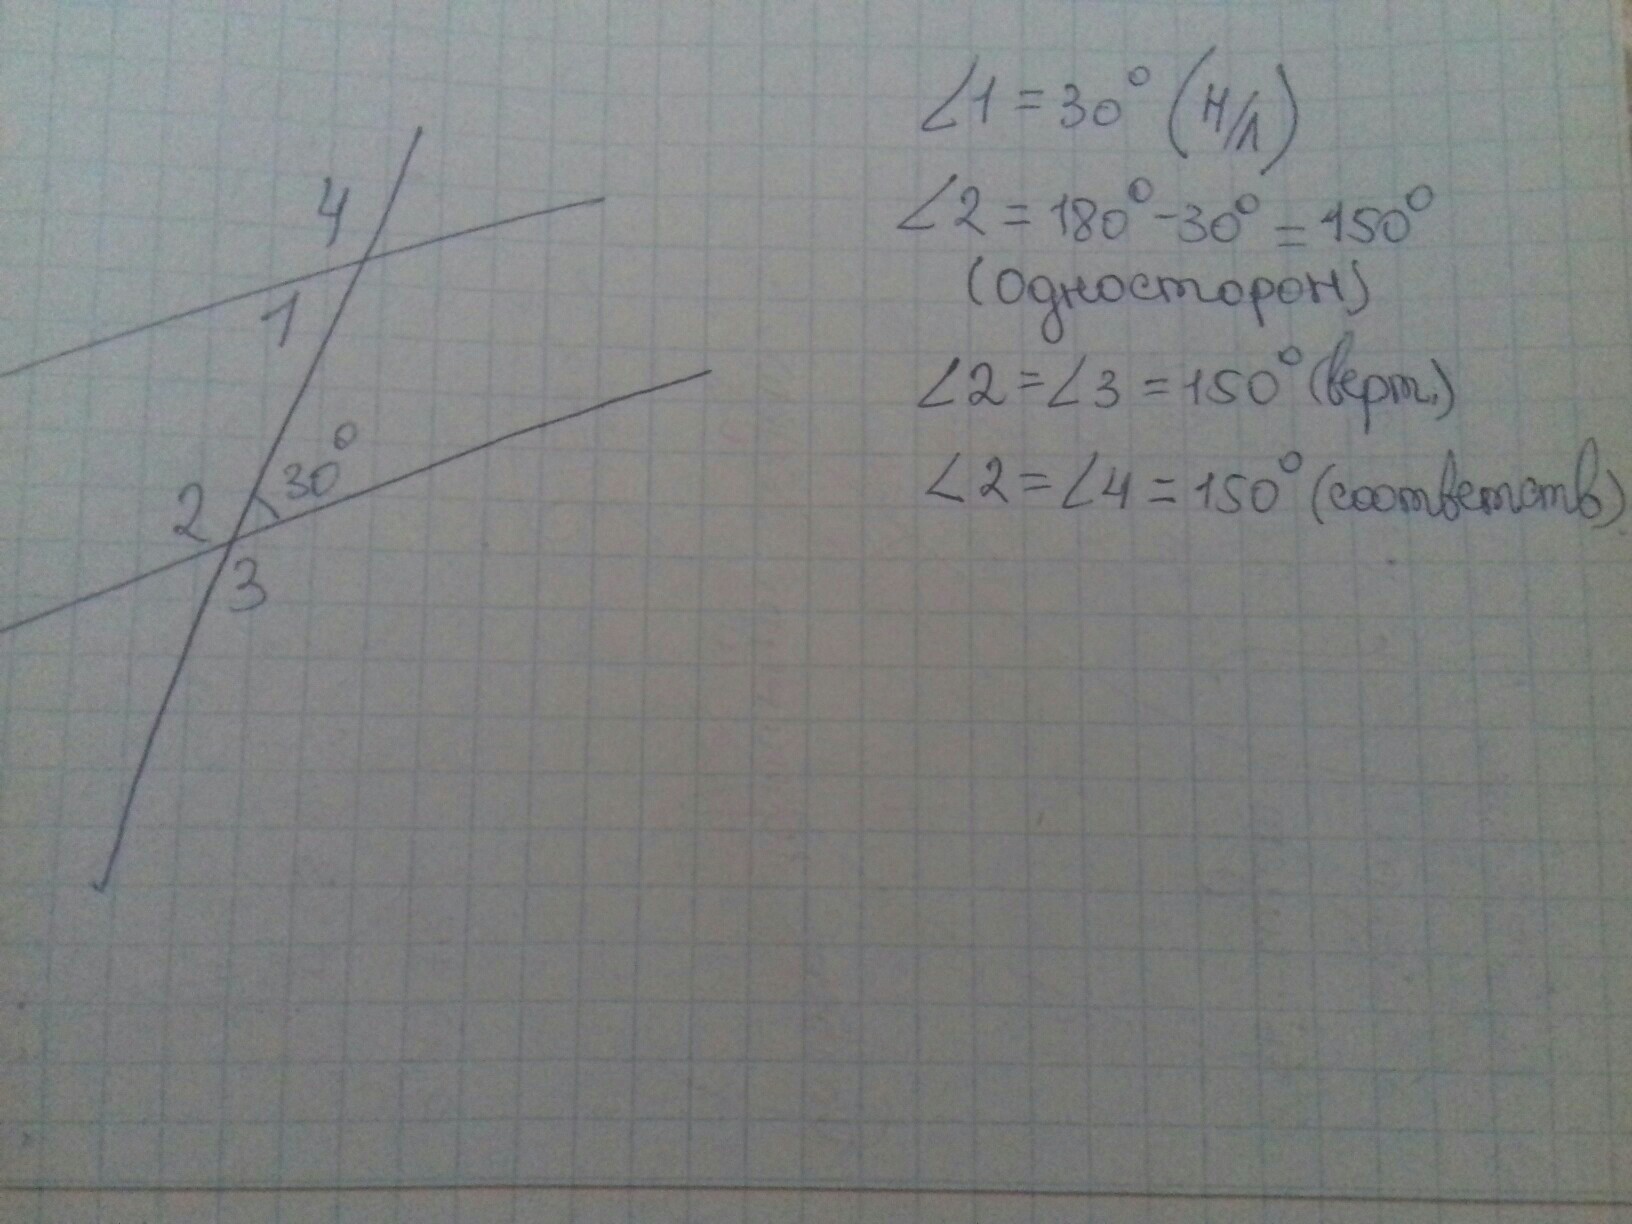 4
1
30°
2
3
∠1 = 30° (н/л)
∠2 = 180° - 30° = 150°
(односторон)
∠2 = ∠3 = 150° (верт.)
∠2 = ∠4 = 150° (соответств)